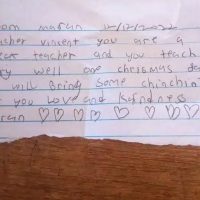 om marcin 21/12/2022
acher vincent you are a
reat teacher and you teach
ry well one chrismas da
will bring some chinchin
r you Love and kindness
♡ ♡ ♡ ♡ ♡ ♡ ♡